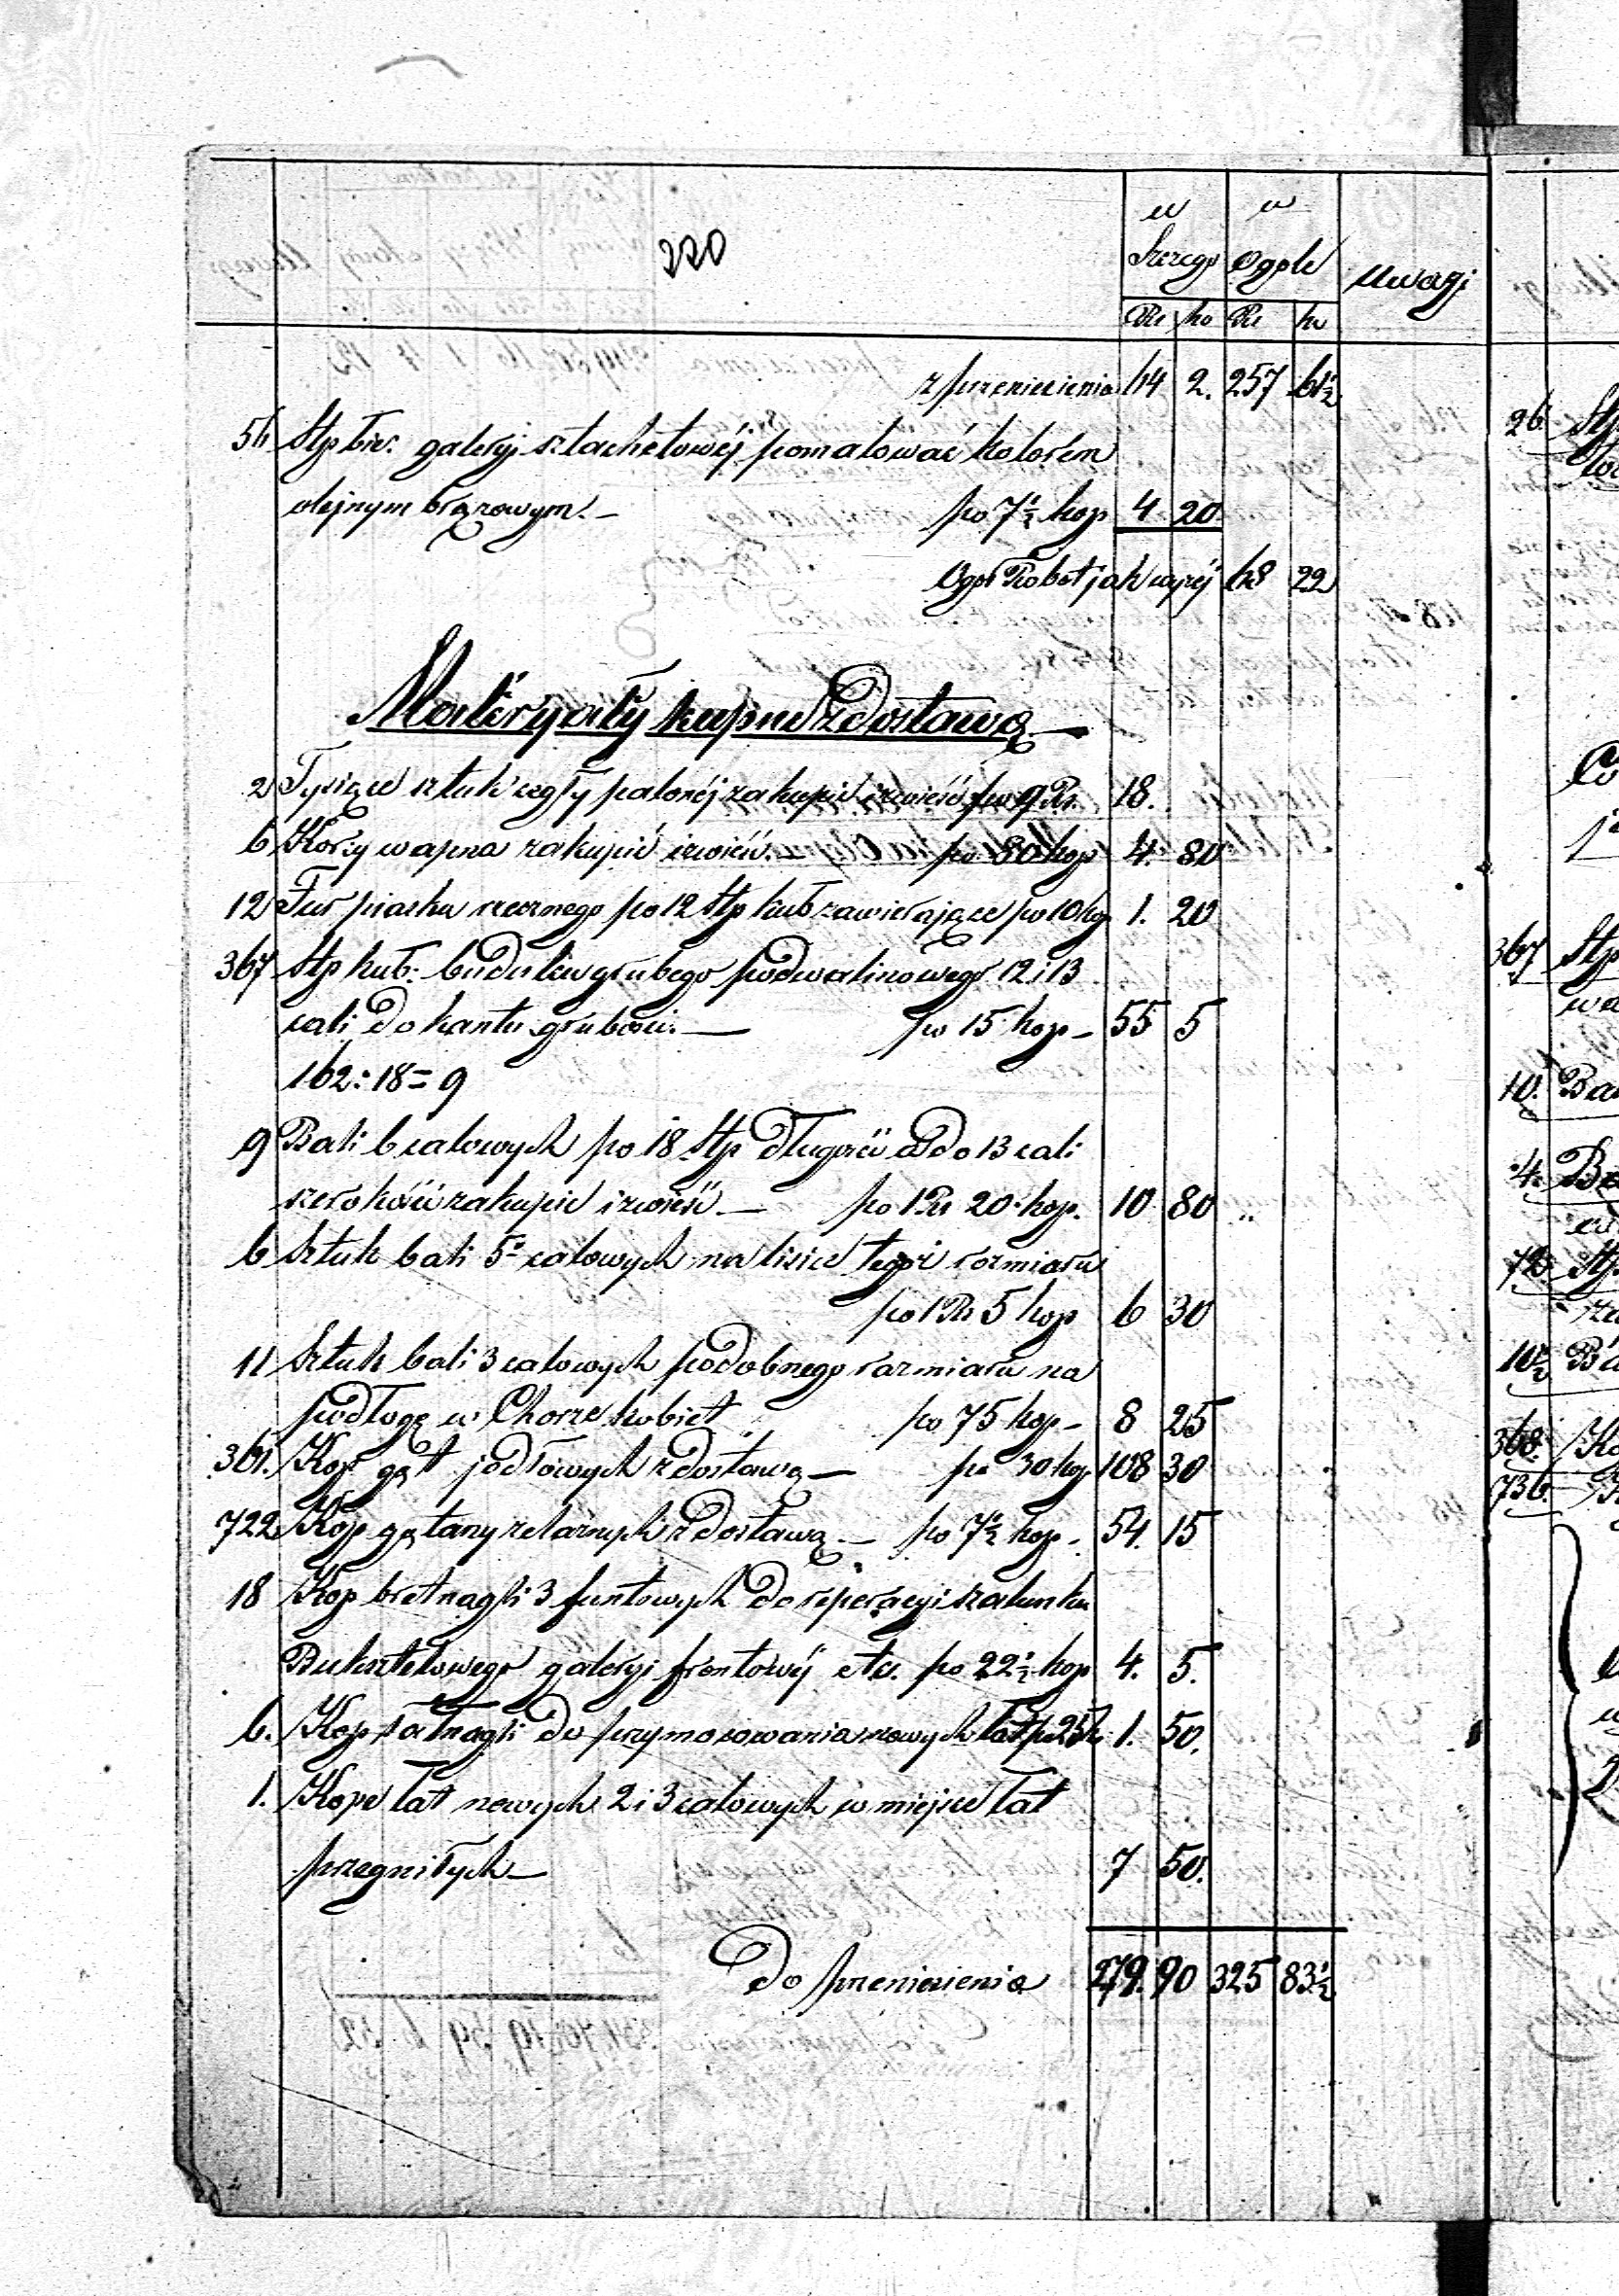 220
w Szczegó
w Ogóle
Uwagi
Rs ko Rs ko
z przeniesienia 64 2. 257 61½
56 Stp bie: galeryi sztachetowéj pomalować kolorem
olejnym brązowym. – po 7½ kop 4 20
Ogół Robot jak wyżéj 68 22
Materyały kupne z dostawą –
2 Tysiące sztuk cegły palonéj zakupić i zwieść po 9 Rs. 18.
6 Korcy wapna zakupić i zwieść. – po 80 kop 4. 80
12 Fur piasku rzecznego po 12 Stp kub zawierające po 10 kop 1. 20
367 Stp kub: budulcu grubego podwalinowego 12 i 13
cali do kantu grubości. – po 15 kop – 55 5
162:18=9
9 Bali 6 calowych po 18 Stp długości a do 13 cali
szerokości zakupić i zwieść – po 1 Rs 20 kop. 10 80 „
6 Sztuk bali 5 calowych na lisice tegoż rozmiaru
po 1 Rs 5 kop 6 30
11 Sztuk bali 3 calowych podobnego rozmiaru na
podłogę w Chorze kobiet po 75 kop – 8 25
361. Kop gąt jodłowych z dostawą – po 30 kop 108 30
722 Kop gątany żelaznych z dostawą – po 7½ kop – 54. 15
18 Kop bretnagli 3 funtowych do reperacyi szalunku
Buksztelowego galeryi frontowéj etc. po 22½ kop 4. 5.
6. Kop łatnagli do przymocowania nowych łat po 25 k. 1. 50.
1. Kopę łat nowych 2 i 3 calowych w miejsce łat
przegniłych – 7 50.
Do przeniesienia 279. 90 325 83½
26. Stp
367 Stp
10. Ba
4.
72 Stp
10½
368. Ko
736.